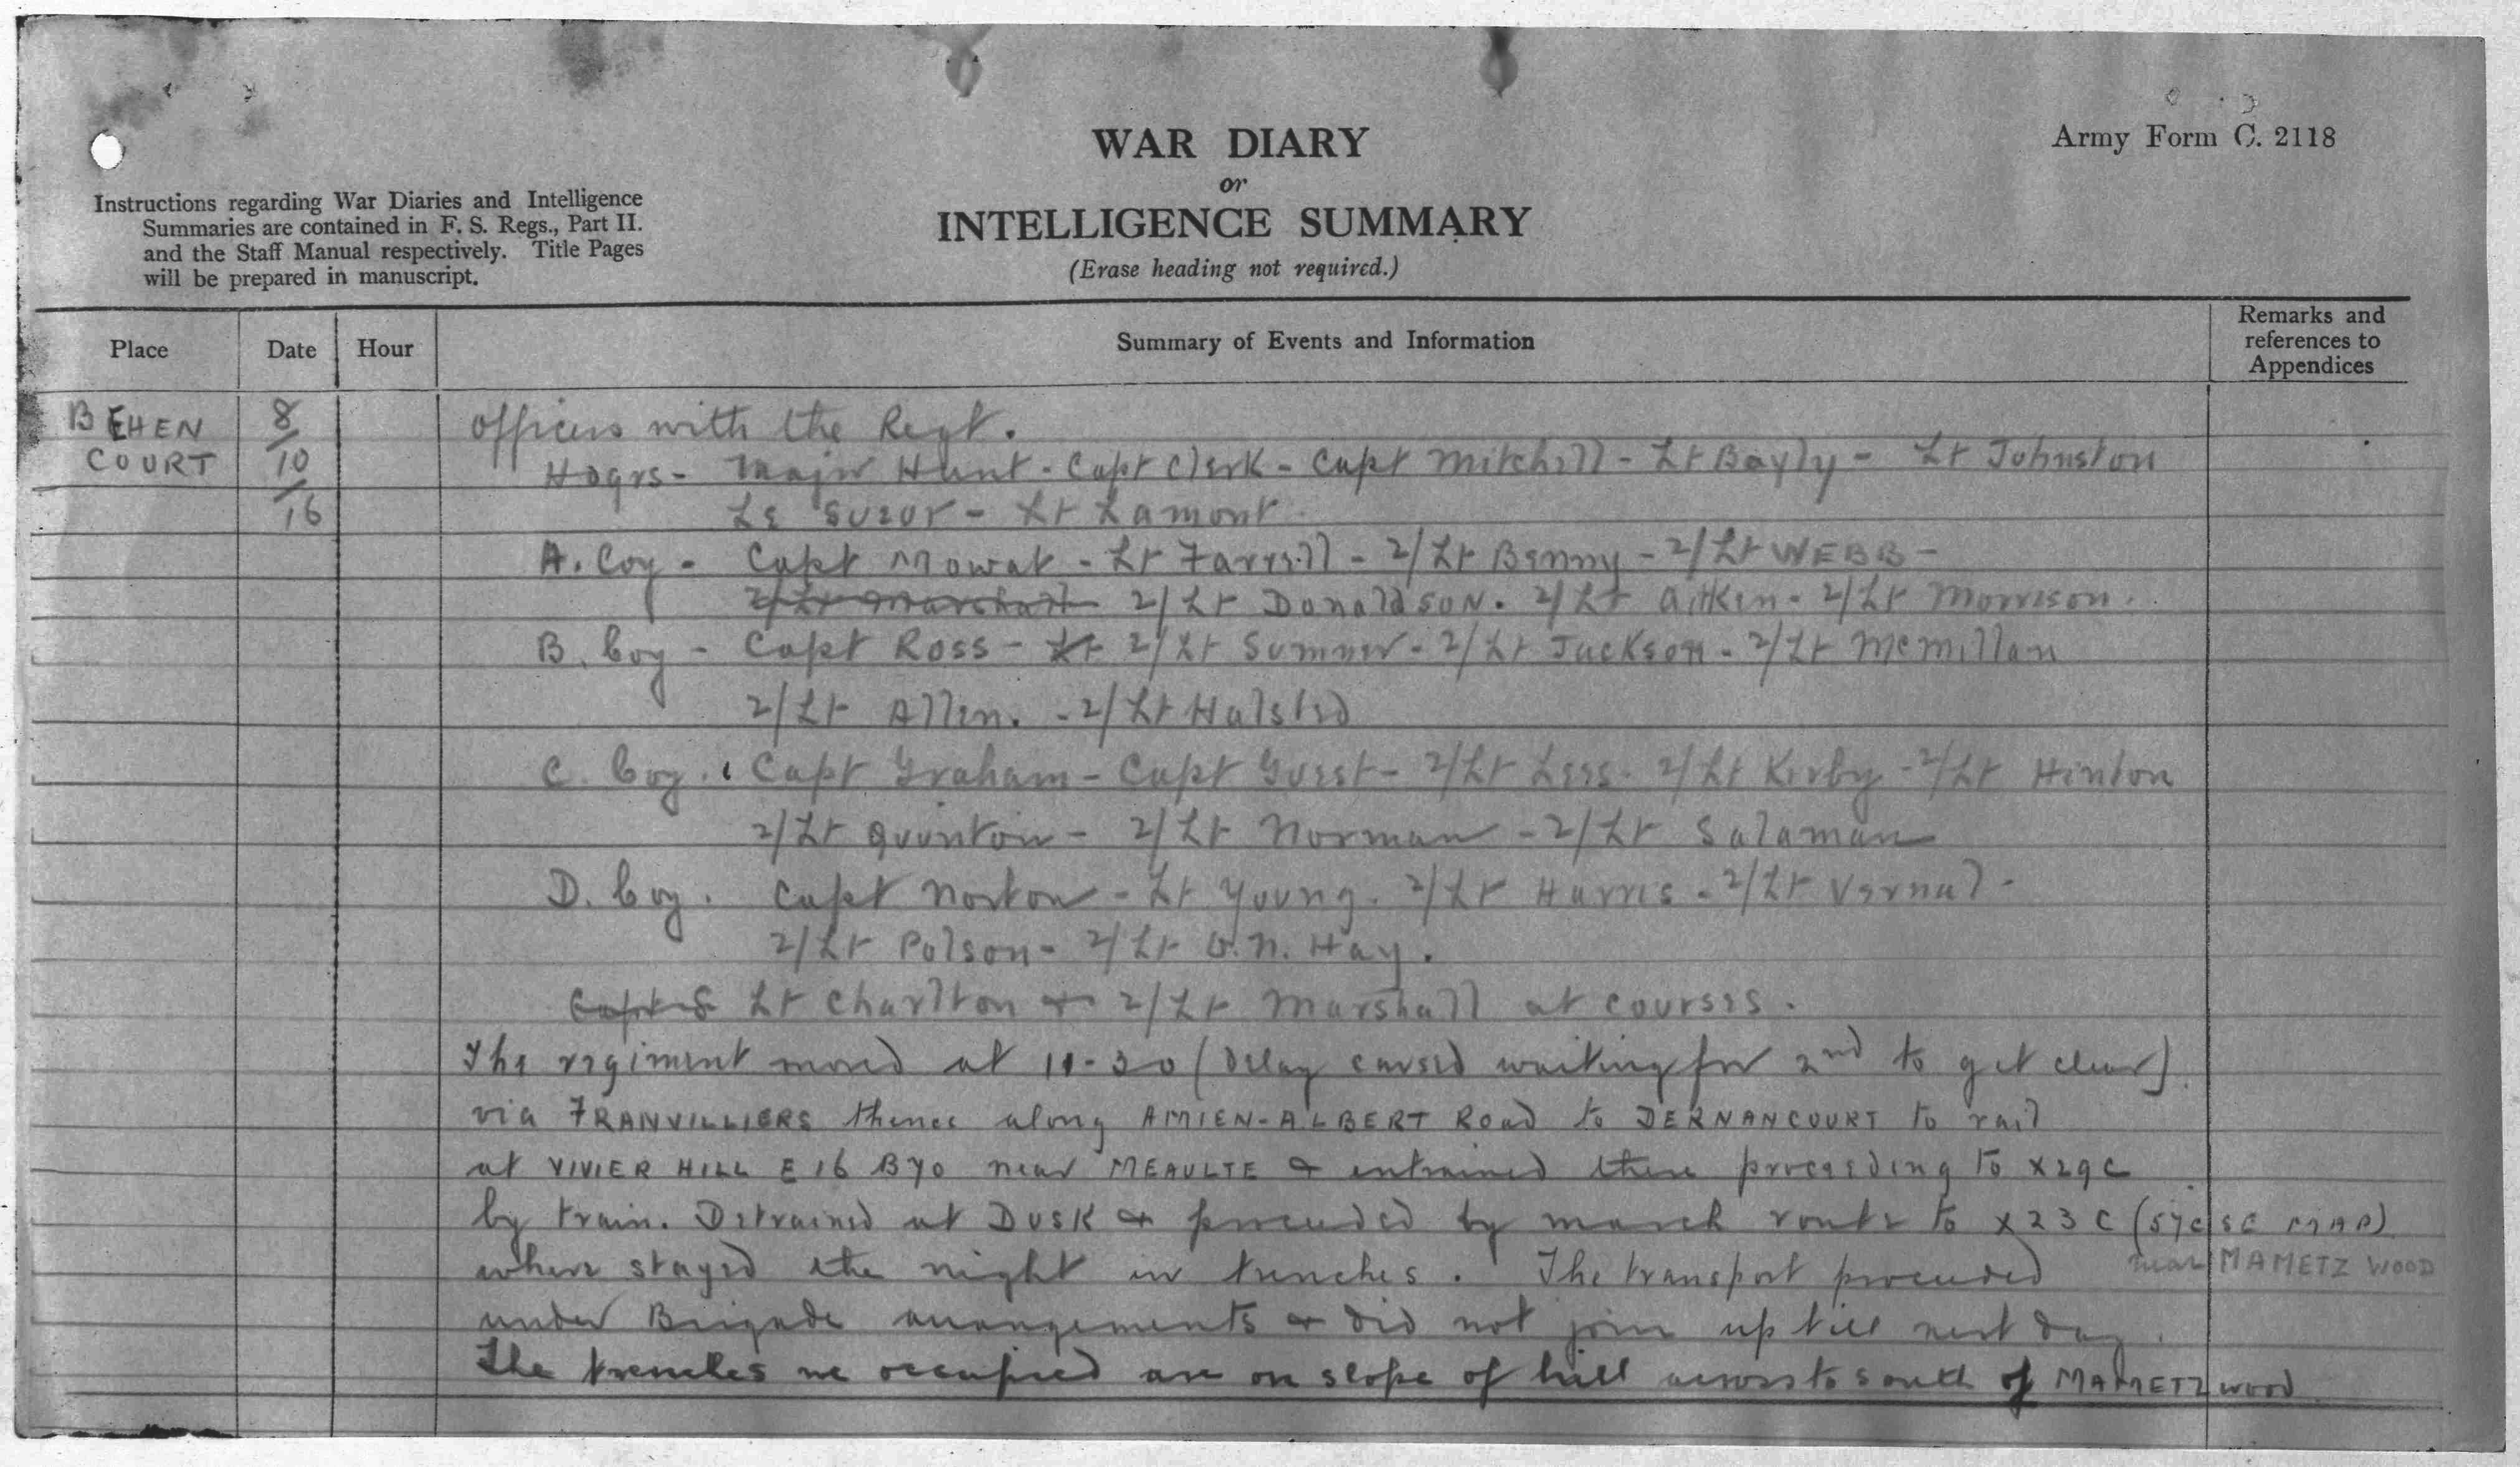 WAR DIARY
or
INTELLIGENCE SUMMARY
(Erase heading not required.)
Army Form C. 2118
Instructions regarding War Diaries and Intelligence
Summaries are contained in F. S. Regs., Part II.
and the Staff Manual respectively. Title Pages
will be prepared in manuscript.
Place
Date
Hour
Summary of Events and Information
Remarks and
references to
Appendices
BEHEN
COURT
8/10/16
Officers with the Regt.
Hdqrs - Major Hunt - Capt Clerk - Capt Mitchell - Lt Bayly - Lt Johnston
Le Sueur - Lt Lamont.
A. Coy - Capt Mowat - Lt Farrell - 2/Lt Benny - 2/Lt WEBB -
2/Lt Marshall 2/Lt Donaldson. 2/Lt Aitken - 2/Lt Morrison.
B. Coy - Capt Ross - Lt 2/Lt Sumner - 2/Lt Jackson - 2/Lt McMillan
2/Lt Allen. - 2/Lt Halsted
C. Coy. Capt Graham - Capt Guest - 2/Lt Lees. 2/Lt Kirby - 2/Lt Hinton
2/Lt Quinton - 2/Lt Norman - 2/Lt Salaman
D. Coy. Capt Norton - Lt Young. 2/Lt Harris - 2/Lt Vernal -
2/Lt Polson - 2/Lt O.N. Hay.
Lt Charlton & 2/Lt Marshall at courses.
The regiment moved at 11-30 (Delay caused waiting for 2nd to get clear)
via FRANVILLIERS thence along AMIEN-ALBERT Road to DERNANCOURT to rail
at VIVIER HILL E 16 B 70 near MEAULTE & entrained there proceeding to X29C
by train. Detrained at DUSK & proceeded by march route to X23C (57C SE MAP)
near MAMETZ WOOD
where stayed the night in trenches. The transport proceeded
under Brigade arrangements & did not join up till next day.
The trenches we occupied are on slope of hill across to south of MAMETZ wood